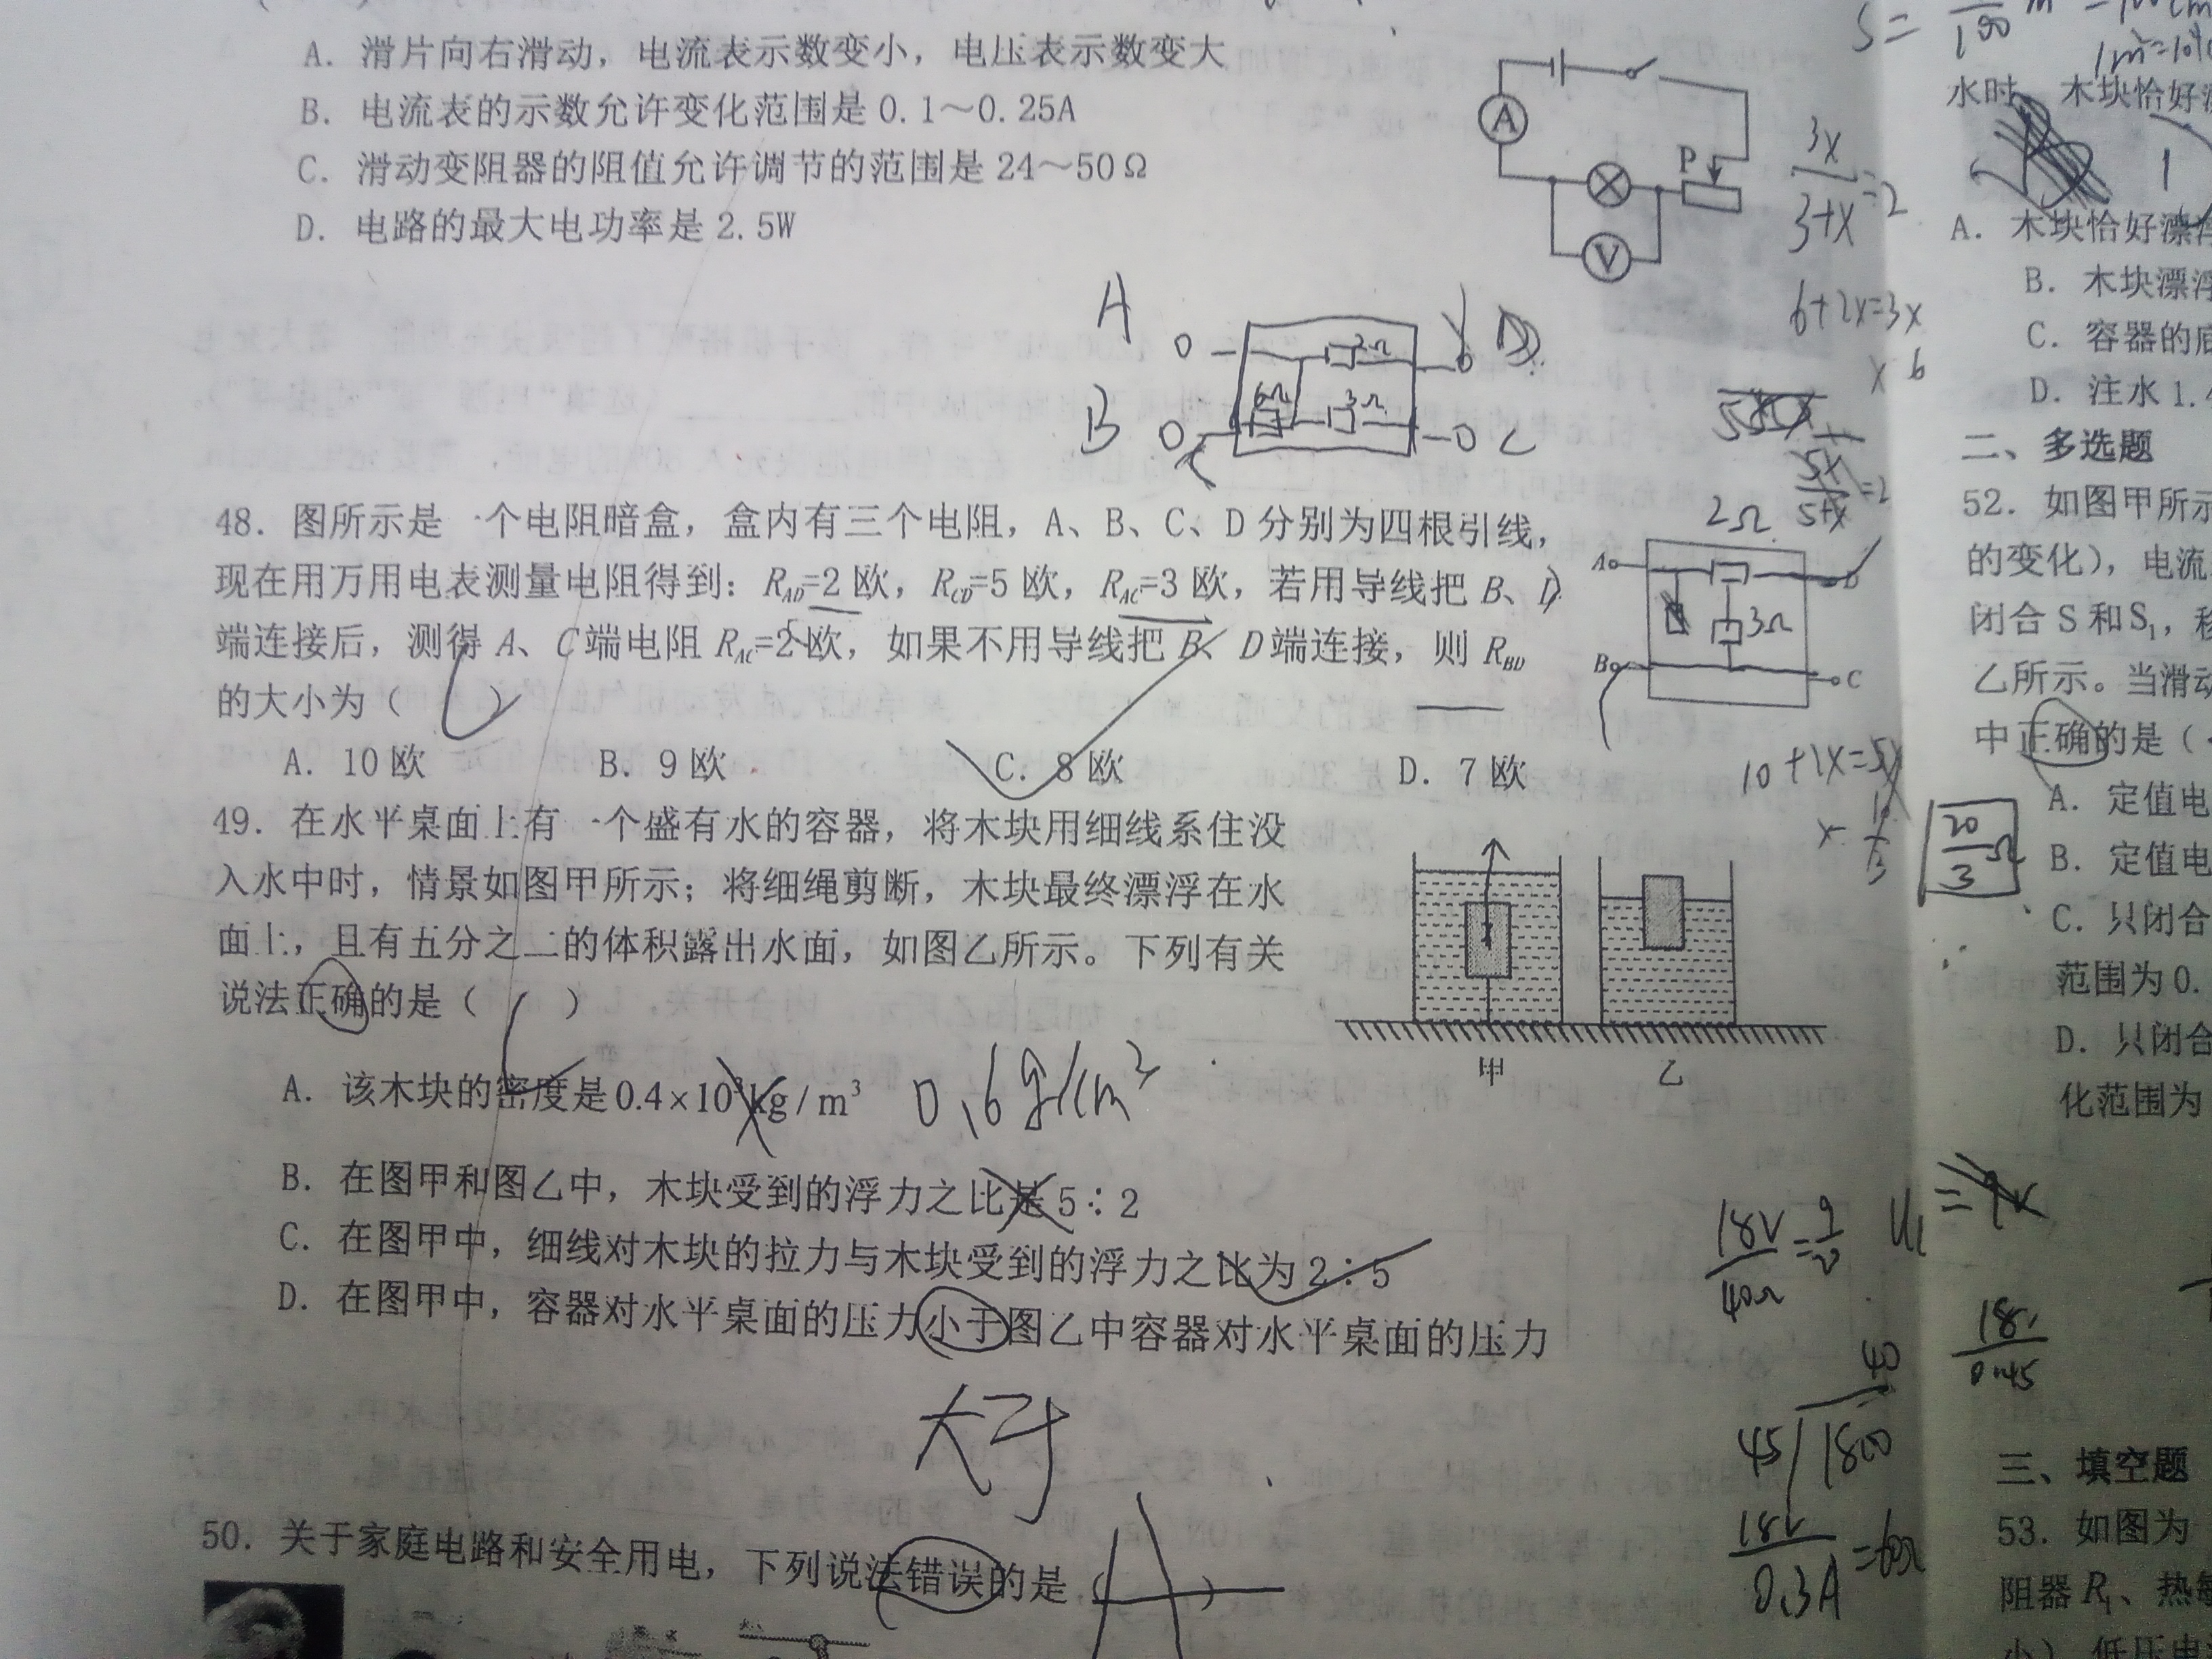 A. 滑片向右滑动，电流表示数变小，电压表示数变大
B. 电流表的示数允许变化范围是 0.1～0.25A
C. 滑动变阻器的阻值允许调节的范围是 24～50Ω
D. 电路的最大电功率是 2.5W
A
V
P
3x/(3+x)=2
6+2x=3x
x 6
A
B
D
C
2Ω
6Ω
3Ω
48. 图所示是一个电阻暗盒，盒内有三个电阻，A、B、C、D 分别为四根引线，
现在用万用电表测量电阻得到：R_AD=2 欧，R_CD=5 欧，R_AC=3 欧，若用导线把 B、D
端连接后，测得 A、C 端电阻 R_AC=2 欧，如果不用导线把 B、D 端连接，则 R_BD
的大小为（ ）
A. 10 欧 B. 9 欧 C. 8 欧 D. 7 欧
2Ω
5x/(5+x)=2
A
3Ω
B
C
10+2x=5x
20/3 Ω
49. 在水平桌面上有一个盛有水的容器，将木块用细线系住没
入水中时，情景如图甲所示；将细绳剪断，木块最终漂浮在水
面上，且有五分之二的体积露出水面，如图乙所示。下列有关
说法正确的是（ ）
甲 乙
A. 该木块的密度是 0.4×10³kg/m³ 0.6g/cm³
B. 在图甲和图乙中，木块受到的浮力之比是 5∶2
C. 在图甲中，细线对木块的拉力与木块受到的浮力之比为 2∶5
D. 在图甲中，容器对水平桌面的压力小于图乙中容器对水平桌面的压力
大于
18V/40Ω
40
45 1800
18V/0.3A=60Ω
18V/0.45
50. 关于家庭电路和安全用电，下列说法错误的是（A）
水时，木块恰好
A. 木块恰好漂浮
B. 木块漂浮
C. 容器的底
D. 注水 1.4
二、多选题
52. 如图甲所示
的变化），电流
闭合 S 和 S₁，移
乙所示。当滑动
中正确的是（
A. 定值电
B. 定值电
C. 只闭合
范围为 0.
D. 只闭合
化范围为
三、填空题
53. 如图为
阻器 R₁、热敏